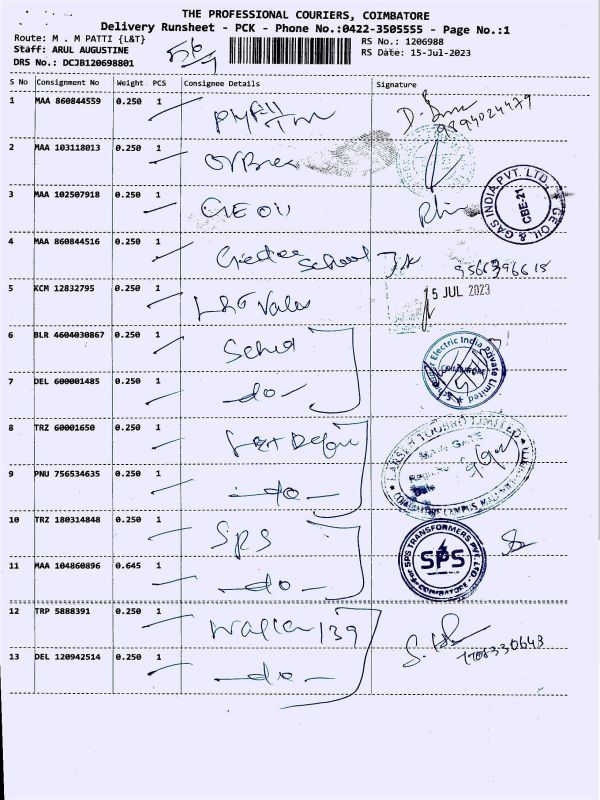 THE PROFESSIONAL COURIERS, COIMBATORE
Delivery Runsheet - PCK - Phone No.:0422-3505555 - Page No.:1
Route: M . M PATTI {L&T}
RS No.: 1206988
Staff: ARUL AUGUSTINE
RS Date: 15-Jul-2023
DRS No.: DCJB120698801
S No Consignment No Weight PCS Consignee Details Signature
1 MAA 860844559 0.250 1
9894024479
2 MAA 103118013 0.250 1
3 MAA 102507918 0.250 1 GE OIL
GE OIL & GAS INDIA PVT. LTD. CBE-21
4 MAA 860844516 0.250 1 School 9566396615
5 KCM 12832795 0.250 1 L&T Valve
15 JUL 2023
6 BLR 4604030867 0.250 1
Electric India Private Limited
7 DEL 600001485 0.250 1 -do-
8 TRZ 60001650 0.250 1
LARSEN & TOUBRO LIMITED
MAIN GATE
9 PNU 756534635 0.250 1 -do-
10 TRZ 180314848 0.250 1 SPS
for SPS TRANSFORMERS PVT. LTD. SPS COIMBATORE
11 MAA 104860896 0.645 1 -do-
12 TRP 5888391 0.250 1
13 DEL 120942514 0.250 1 -do-